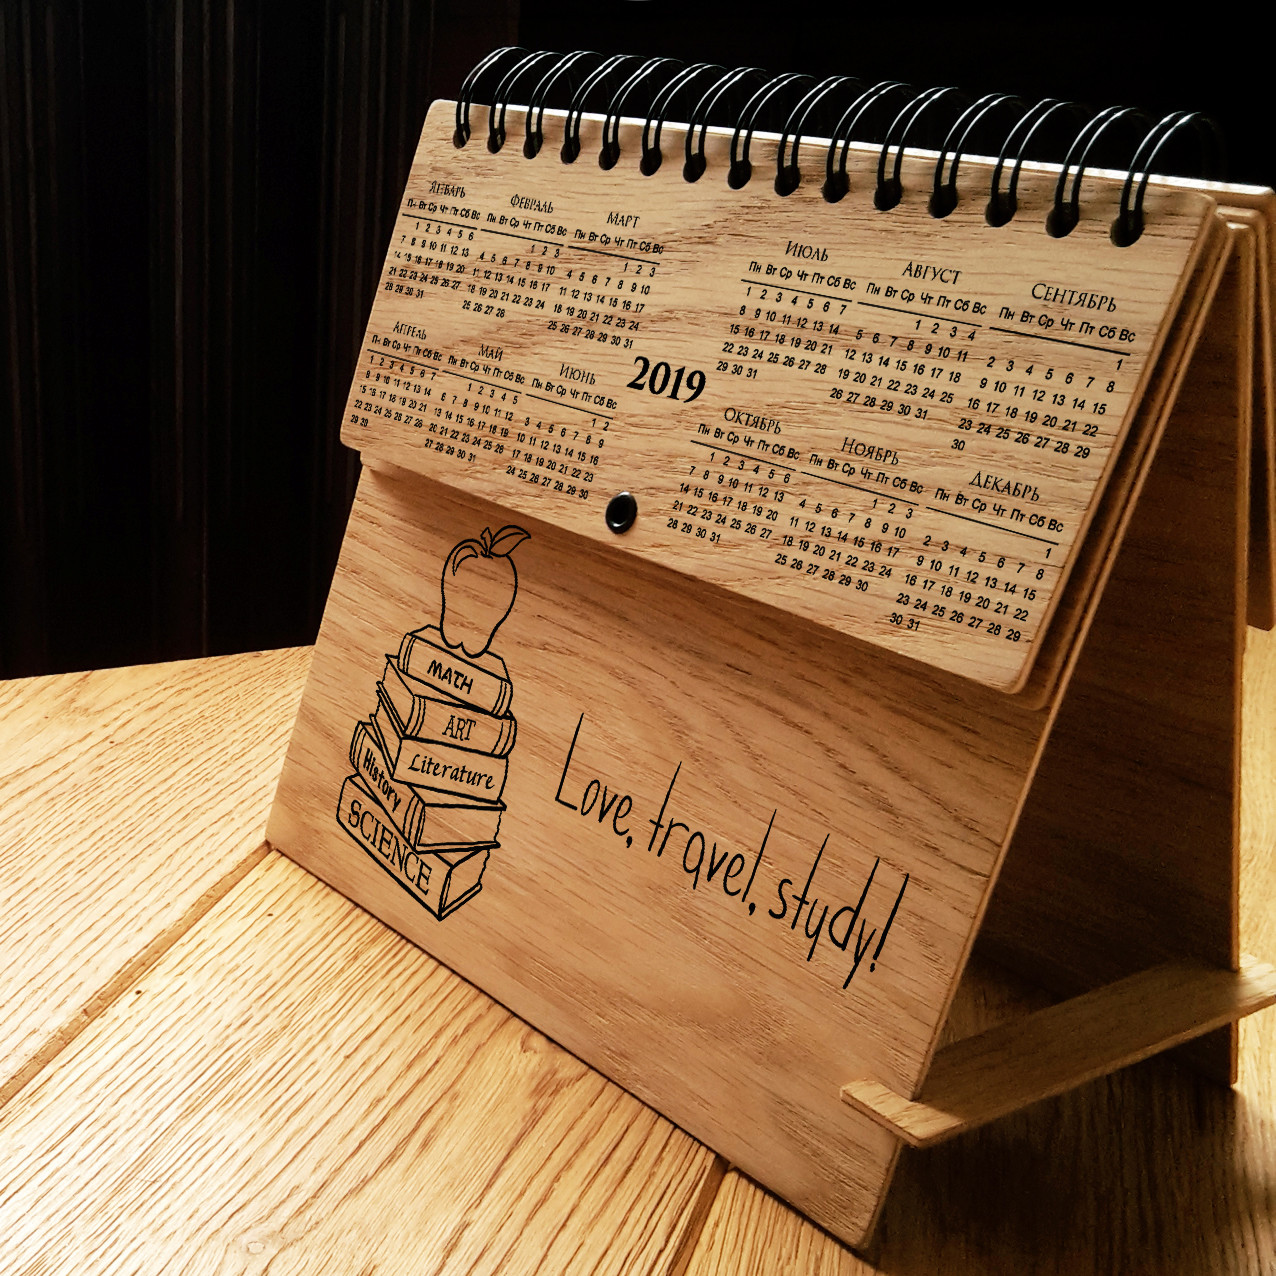 Январь
Пн Вт Ср Чт Пт Сб Вс
1 2 3 4 5 6
7 8 9 10 11 12 13
14 15 16 17 18 19 20
21 22 23 24 25 26 27
28 29 30 31
Февраль
Пн Вт Ср Чт Пт Сб Вс
1 2 3
4 5 6 7 8 9 10
11 12 13 14 15 16 17
18 19 20 21 22 23 24
25 26 27 28
Март
Пн Вт Ср Чт Пт Сб Вс
1 2 3
4 5 6 7 8 9 10
11 12 13 14 15 16 17
18 19 20 21 22 23 24
25 26 27 28 29 30 31
Апрель
Пн Вт Ср Чт Пт Сб Вс
1 2 3 4 5 6 7
8 9 10 11 12 13 14
15 16 17 18 19 20 21
22 23 24 25 26 27 28
29 30
Май
Пн Вт Ср Чт Пт Сб Вс
1 2 3 4 5
6 7 8 9 10 11 12
13 14 15 16 17 18 19
20 21 22 23 24 25 26
27 28 29 30 31
Июнь
Пн Вт Ср Чт Пт Сб Вс
1 2
3 4 5 6 7 8 9
10 11 12 13 14 15 16
17 18 19 20 21 22 23
24 25 26 27 28 29 30
2019
Июль
Пн Вт Ср Чт Пт Сб Вс
1 2 3 4 5 6 7
8 9 10 11 12 13 14
15 16 17 18 19 20 21
22 23 24 25 26 27 28
29 30 31
Август
Пн Вт Ср Чт Пт Сб Вс
1 2 3 4
5 6 7 8 9 10 11
12 13 14 15 16 17 18
19 20 21 22 23 24 25
26 27 28 29 30 31
Сентябрь
Пн Вт Ср Чт Пт Сб Вс
1
2 3 4 5 6 7 8
9 10 11 12 13 14 15
16 17 18 19 20 21 22
23 24 25 26 27 28 29
30
Октябрь
Пн Вт Ср Чт Пт Сб Вс
1 2 3 4 5 6
7 8 9 10 11 12 13
14 15 16 17 18 19 20
21 22 23 24 25 26 27
28 29 30 31
Ноябрь
Пн Вт Ср Чт Пт Сб Вс
1 2 3
4 5 6 7 8 9 10
11 12 13 14 15 16 17
18 19 20 21 22 23 24
25 26 27 28 29 30
Декабрь
Пн Вт Ср Чт Пт Сб Вс
1
2 3 4 5 6 7 8
9 10 11 12 13 14 15
16 17 18 19 20 21 22
23 24 25 26 27 28 29
30 31
MATH
ART
Literature
History
SCIENCE
Love, travel, study!